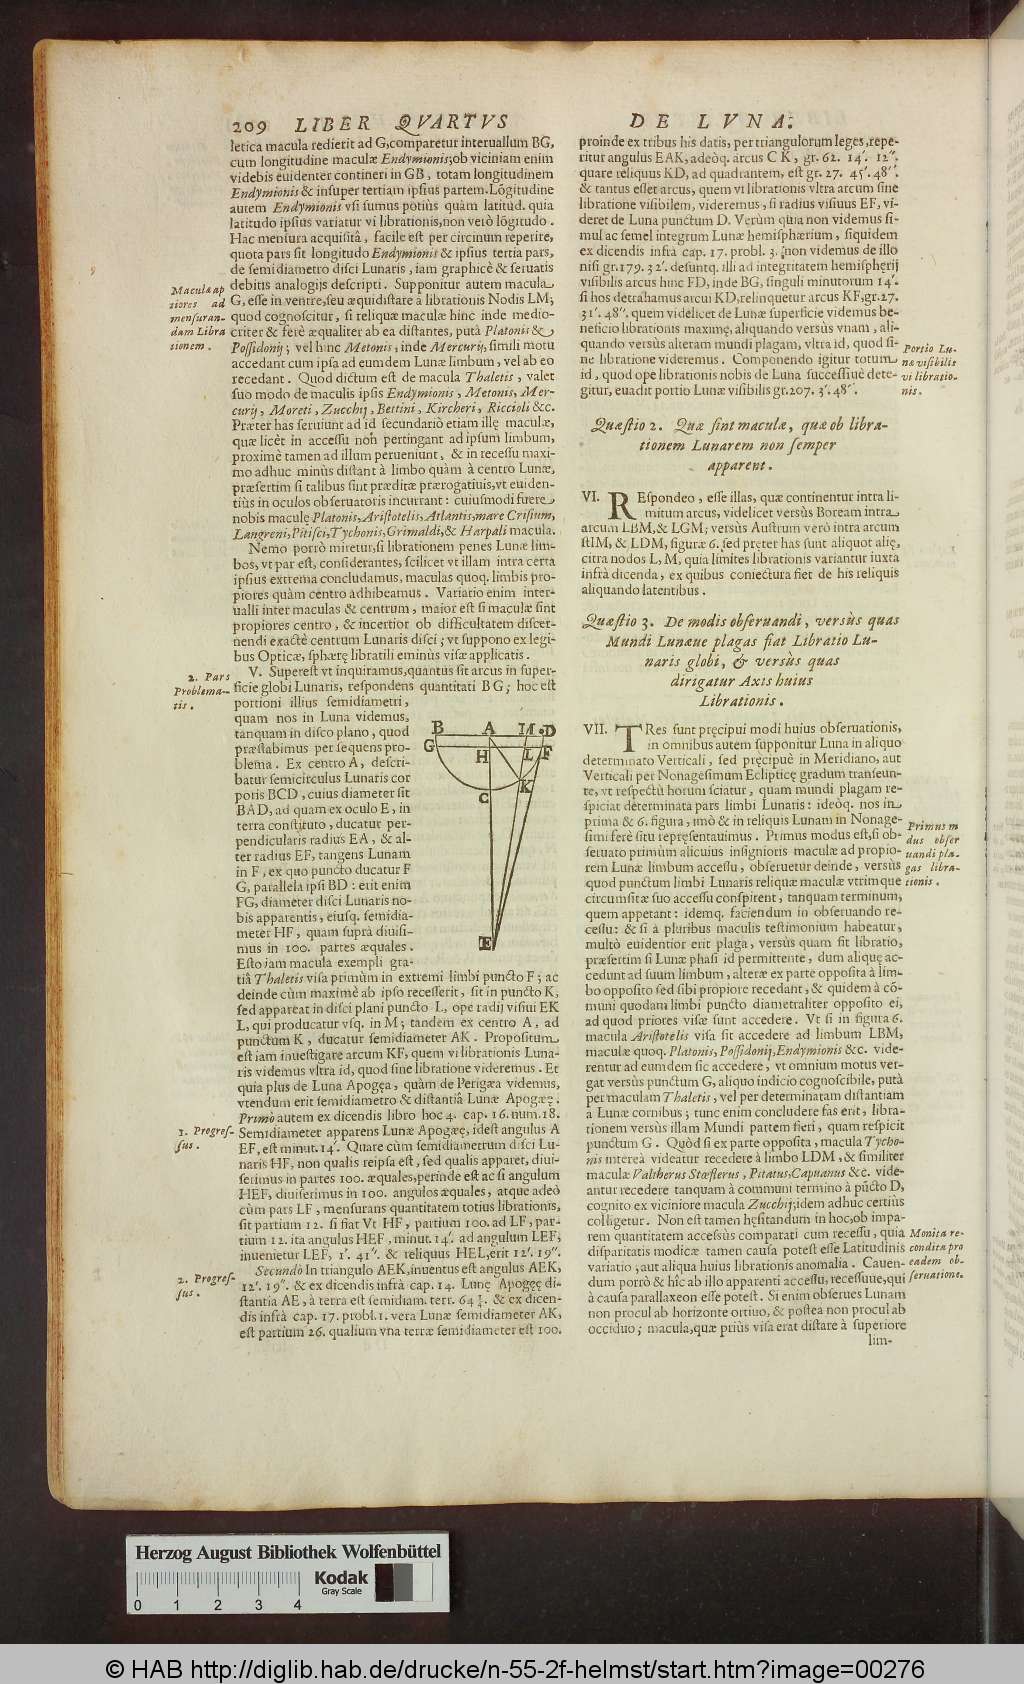 209 LIBER QVARTVS
letica macula redierit ad G, comparetur interuallum BG,
cum longitudine maculæ Endymionis; ob viciniam enim
videbis euidenter contineri in GB, totam longitudinem
Endymionis & insuper tertiam ipsius partem. Lōgitudine
autem Endymionis vsi sumus potiùs quàm latitud. quia
latitudo ipsius variatur vi librationis, non verò lōgitudo.
Hac mensura acquisitâ, facile est per circinum reperire,
quota pars sit longitudo Endymionis & ipsius tertia pars,
de semidiametro disci Lunaris, iam graphicè & seruatis
debitis analogijs descripti. Supponitur autem macula
G, esse in ventre, seu æquidistare à librationis Nodis LM;
quod cognoscitur, si reliquæ maculæ hinc inde medio-
criter & ferè æqualiter ab ea distantes, putà Platonis &
Possidonij; vel hinc Metonis, inde Mercurij, simili motu
accedant cum ipsa ad eumdem Lunæ limbum, vel ab eo
recedant. Quod dictum est de macula Thaletis, valet
suo modo de maculis ipsis Endymionis, Metonis, Mer-
curij, Moreti, Zucchij, Bettini, Kircheri, Riccioli &c.
Præter has seruiunt ad id secundariò etiam illę maculæ,
quæ licèt in accessu non pertingant ad ipsum limbum,
proximè tamen ad illum perueniunt, & in recessu maxi-
mo adhuc minùs distant à limbo quàm à centro Lunæ,
præsertim si talibus sint præditæ prærogatiuis, vt euiden-
tiùs in oculos obseruatoris incurrant: cuiusmodi fuere
nobis maculę Platonis, Aristotelis, Atlantis, mare Crisium,
Langreni, Pitisci, Tychonis, Grimaldi, & Harpali macula.
Nemo porrò miretur, si librationem penes Lunæ lim-
bos, vt par est, considerantes, scilicet vt illam intra certa
ipsius extrema concludamus, maculas quoq. limbis pro-
piores quàm centro adhibeamus. Variatio enim inter-
ualli inter maculas & centrum, maior est si maculæ sint
propiores centro, & incertior ob difficultatem discer-
nendi exactè centrum Lunaris disci; vt suppono ex legi-
bus Opticæ, sphærę libratili eminùs visæ applicatis.
V. Superest vt inquiramus, quantus sit arcus in super-
ficie globi Lunaris, respondens quantitati BG; hoc est
portioni illius semidiametri,
quam nos in Luna videmus,
tanquam in disco plano, quod
præstabimus per sequens pro-
blema. Ex centro A, descri-
batur semicirculus Lunaris cor
poris BCD, cuius diameter sit
BAD, ad quam ex oculo E, in
terra constituto, ducatur per-
pendicularis radius EA, & al-
ter radius EF, tangens Lunam
in F, ex quo puncto ducatur F
G, parallela ipsi BD: erit enim
FG, diameter disci Lunaris no-
bis apparentis, eiusq. semidia-
meter HF, quam suprà diuisi-
mus in 100. partes æquales.
Esto iam macula exempli gra-
tiâ Thaletis visa primùm in extremi limbi puncto F; ac
deinde cùm maximè ab ipso recesserit, sit in puncto K,
sed appareat in disci plani puncto L, ope radij visiui EK
L, qui producatur vsq. in M; tandem ex centro A, ad
punctum K, ducatur semidiameter AK. Propositum
est iam inuestigare arcum KF, quem vi librationis Luna-
ris videmus vltra id, quod sine libratione videremus. Et
quia plus de Luna Apogea, quàm de Perigæa videmus,
vtendum erit semidiametro & distantiâ Lunæ Apogææ.
Primò autem ex dicendis libro hoc 4. cap. 16. num. 18.
Semidiameter apparens Lunæ Apogææ, idest angulus A
EF, est minut. 14′. Quare cùm semidiametrum disci Lu-
naris HF, non qualis reipsa est, sed qualis apparet, diui-
serimus in partes 100. æquales, perinde est ac si angulum
HEF, diuiserimus in 100. angulos æquales, atque adeò
cùm pars LF, mensurans quantitatem totius librationis,
sit partium 12. si fiat Vt HF, partium 100. ad LF, par-
tium 12. ita angulus HEF, minut. 14′. ad angulum LEF,
inuenietur LEF, 1′. 41″. & reliquus HEL, erit 12′. 19″.
Secundò In triangulo AEK, inuentus est angulus AEK,
12′. 19″. & ex dicendis infrà cap. 14. Lunę Apogęę di-
stantia AE, à terra est semidiam. terr. 64 & ex dicen-
dis infrà cap. 17. probl. 1. vera Lunæ semidiameter AK,
est partium 26. qualium vna terræ semidiameter est 100.
Maculæ ap
tiores ad
mensuran-
dam Libra
tionem.
2. Pars
Problema-
tis.
1. Progres-
sus.
2. Progres-
sus.
B A M D
G H L F
K
C
E
DE LVNA.
proinde ex tribus his datis, per triangulorum leges, repe-
ritur angulus EAK, adeòq. arcus CK, gr. 62. 14′. 12″.
quare reliquus KD, ad quadrantem, est gr. 27. 45′. 48″.
& tantus esset arcus, quem vi librationis vltra arcum sine
libratione visibilem, videremus, si radius visiuus EF, vi-
deret de Luna punctum D. Verùm quia non videmus si-
mul ac semel integrum Lunæ hemisphærium, siquidem
ex dicendis infrà cap. 17. probl. 3. non videmus de illo
nisi gr. 179. 32′. desuntq. illi ad integritatem hemisphęrij
visibilis arcus hinc FD, inde BG, singuli minutorum 14′.
si hos detrahamus arcui KD, relinquetur arcus KF, gr. 27.
31′. 48″. quem videlicet de Lunæ superficie videmus be-
neficio librationis maximę, aliquando versùs vnam, ali-
quando versùs alteram mundi plagam, vltra id, quod si-
ne libratione videremus. Componendo igitur totum
id, quod ope librationis nobis de Luna successiuè dete-
gitur, euadit portio Lunæ visibilis gr. 207. 3′. 48″.
Quæstio 2. Quæ sint maculæ, quæ ob libra-
tionem Lunarem non semper
apparent.
VI. REspondeo, esse illas, quæ continentur intra li-
mitum arcus, videlicet versùs Boream intra
arcum LBM, & LGM; versùs Austrum verò intra arcum
stIM, & LDM, figuræ 6. sed pręter has sunt aliquot alię,
citra nodos L, M, quia limites librationis variantur iuxta
infrà dicenda, ex quibus coniectura fiet de his reliquis
aliquando latentibus.
Quæstio 3. De modis obseruandi, versùs quas
Mundi Lunæue plagas fiat Libratio Lu-
naris globi, & versùs quas
dirigatur Axis huius
Librationis.
VII. TRes sunt pręcipui modi huius obseruationis,
in omnibus autem supponitur Luna in aliquo
determinato Verticali, sed pręcipuè in Meridiano, aut
Verticali per Nonagesimum Eclipticę gradum transeun-
te, vt respectù horum sciatur, quam mundi plagam re-
spiciat determinata pars limbi Lunaris: ideòq. nos in
prima & 6. figura, imò & in reliquis Lunam in Nonage-
simi ferè situ repręsentauimus. Primus modus est, si ob-
seruato primùm alicuius insignioris maculæ ad propio-
rem Lunæ limbum accessu, obseruetur deinde, versùs
quod punctum limbi Lunaris reliquæ maculæ vtrimque
circumsitæ suo accessu conspirent, tanquam terminum,
quem appetant: idemq. faciendum in obseruando re-
cessu: & si à pluribus maculis testimonium habeatur,
multò euidentior erit plaga, versùs quam sit libratio,
præsertim si Lunæ phasi id permittente, dum aliquę ac-
cedunt ad suum limbum, alteræ ex parte opposita à lim-
bo opposito sed sibi propiore recedant, & quidem à cō-
muni quodam limbi puncto diametraliter opposito ei,
ad quod priores visæ sunt accedere. Vt si in figura 6.
macula Aristotelis visa sit accedere ad limbum LBM,
maculæ quoq. Platonis, Possidonij, Endymionis &c. vide-
rentur ad eumdem sic accedere, vt omnium motus ver-
gat versùs punctum G, aliquo indicio cognoscibile, putà
per maculam Thaletis, vel per determinatam distantiam
à Lunæ cornibus; tunc enim concludere fas erit, libra-
tionem versùs illam Mundi partem fieri, quam respicit
punctum G. Quòd si ex parte opposita, macula Tycho-
nis intereà videatur recedere à limbo LDM, & similiter
maculæ Valtherus Stœflerus, Pitatus, Capuanus &c. vide-
antur recedere tanquam à communi termino à pūcto D,
cognito ex viciniore macula Zucchij; idem adhuc certiùs
colligetur. Non est tamen hęsitandum in hoc, ob impa-
rem quantitatem accessùs comparati cum recessu, quia
disparitatis modicæ tamen causa potest esse Latitudinis
variatio, aut aliqua huius librationis anomalia. Cauen-
dum porrò & hîc ab illo apparenti accessu, recessuue, qui
à causa parallaxeon esse potest. Si enim obserues Lunam
non procul ab horizonte ortiuo, & postea non procul ab
occiduo; macula, quæ priùs visa erat distare à superiore
lim-
Portio Lu-
næ visibilis
vi libratio-
nis.
Primus m
dus obser
uandi pla-
gas libra-
tionis.
Monita re-
condita pro
eadem ob-
seruatione.
Herzog August Bibliothek Wolfenbüttel
Kodak
Gray Scale
0 1 2 3 4
© HAB http://diglib.hab.de/drucke/n-55-2f-helmst/start.htm?image=00276